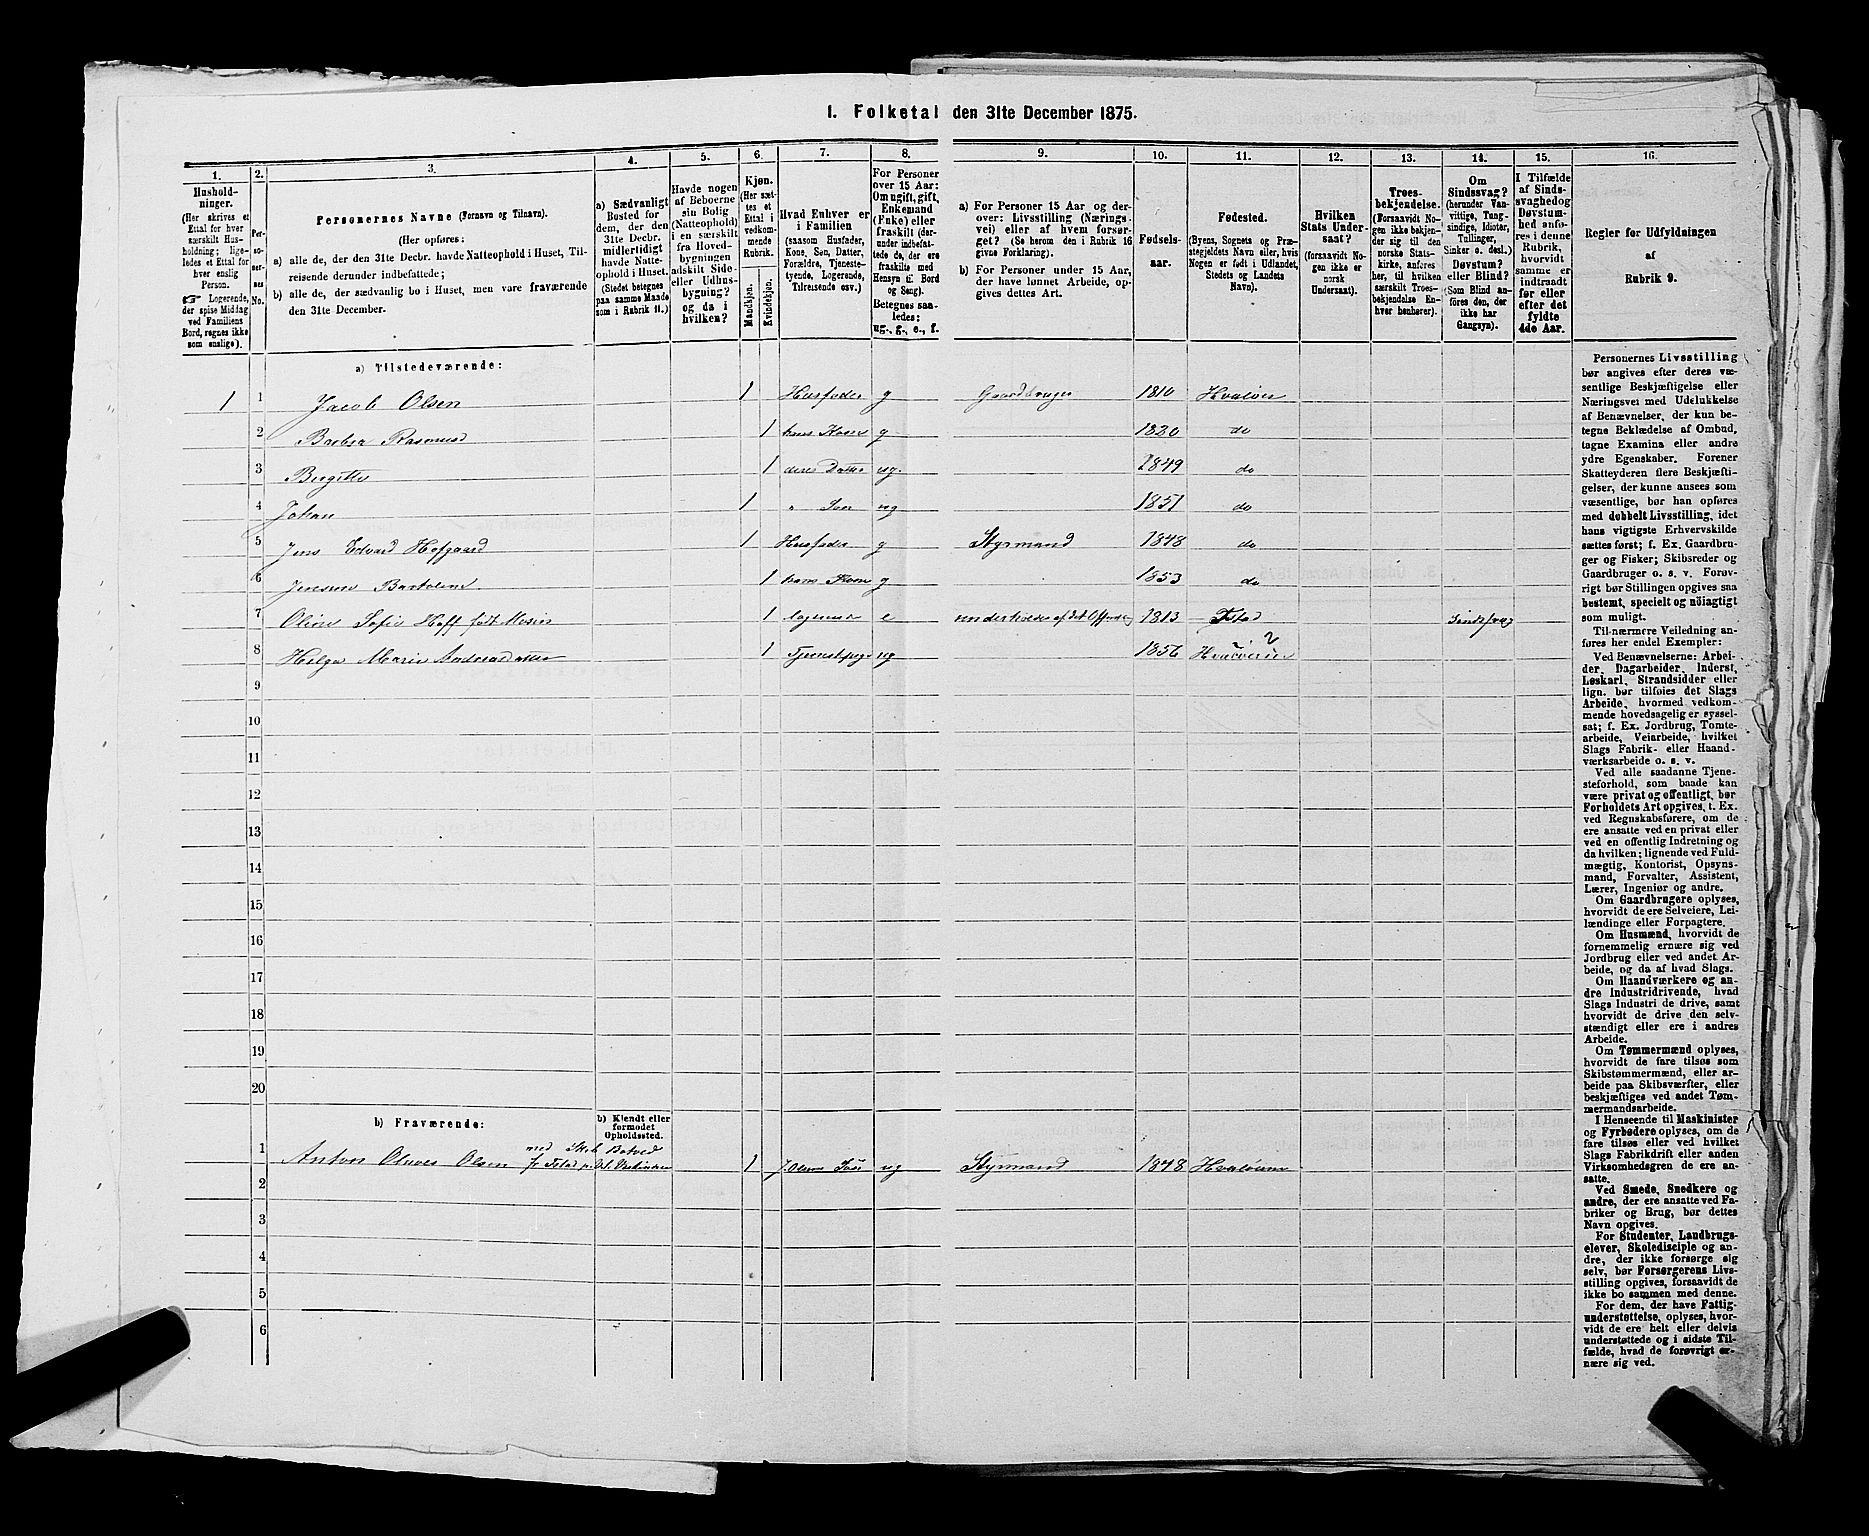 I. Folketal den 31te December 1875.
1. 2. 3. 4. 5. 6. 7. 8. 9. 10. 11. 12. 13. 14. 15. 16.
Hushold-
ninger.
(Her skrives et
Ettal for hver
særskilt Hus-
holdning; lige-
ledes et Ettal for
hver enslig
Person.
☞ Logerende,
der spise Middag
ved Familiens
Bord, regnes ikke
som enslige).
Per-
so-
ner-
nes
No.
Personernes Navne (Fornavn og Tilnavn).
(Her opføres:
a) alle de, der den 31te Decbr. havde Natteophold i Huset, Til-
reisende derunder indbefattede;
b) alle de, der sædvanlig bo i Huset, men vare fraværende
den 31te December.
a) Sædvanligt
Bosted for
dem, der den
31te Decbr.
midlertidigt
havde Natte-
ophold i Huset.
(Stedet betegnes
paa samme Maade
som i Rubrik 11.)
Havde nogen
af Beboerne
sin Bolig
(Natteophold)
i en særskilt
fra Hoved-
bygningen
adskilt Side-
eller Udhus-
bygning?
og da i
hvilken?
Kjøn.
(Her sæt-
tes et
Ettal i
vedkom-
mende
Rubrik.
Mandkjøn.
Kvindekjøn.
Hvad Enhver er
i Familien
(saasom Husfader,
Kone, Søn, Datter,
Forældre, Tjeneste-
tyende, Logerende,
Tilreisende osv.)
For Personer
over 15 Aar:
Om ugift, gift,
Enkemand
(Enke) eller
fraskilt (der-
under indbefat-
tede de, der ere
fraskilte med
Hensyn til Bord
og Seng).
Betegnes saa-
ledes:
ug., g., e., f.
a) For Personer 15 Aar og der-
over: Livsstilling (Nærings-
vei) eller af hvem forsør-
get? (Se herom den i Rubrik 16
givne Forklaring).
b) For Personer under 15 Aar,
der have lønnet Arbeide, op-
gives dettes Art.
Fødsels-
aar.
Fødested.
(Byens, Sognets og Præ-
stegjeldets Navn eller, hvis
Nogen er født i Udlandet,
Stedets og Landets
Navn).
Hvilken
Stats Under-
saat?
(forsaavidt No-
gen ikke er
norsk
Undersaat).
Troes-
bekjendelse.
(Forsaavidt No-
gen ikke bekjen-
der sig til den
norske Stats-
kirke, anføres
her, til hvilken
særskilt Troes-
bekjendelse En-
hver henhører).
Om
Sindssvag?
(herunder Van-
vittige, Tung-
sindige, Idioter,
Tullinger,
Sinker o. desl.)
Døvstum?
eller Blind?
(Som Blind an-
føres den, der
ikke har
Gangsyn).
I Tilfælde
af Sinds-
svaghed og
Døvstum-
hed anfø-
res i denne
Rubrik,
hvorvidt
samme er
indtraadt
før eller
efter det
fyldte
4de Aar.
Regler for Udfyldningen
af
Rubrik 9.
a) Tilstedeværende:
1 1 Jacob Olsen 1 Husfader g Gaardbruger 1810 Hvaløer
2 Barbra Rasmusd 1 hans Kone g 1820 do
3 Birgitte 1 deres Datter ug. 1849 do
4 Johan 1 " Søn ug 1851 do
5 Jens Edvard Hofgaard 1 Husfader g Styrmand 1848 do
6 Jensine Bartoline 1 hans Kone g 1853 do
7 Oline Sofie Hoff født 1 logerende e underholdes af det Offentlig 1813 Fstad Sindssvag
8 Helga Marie Andreasdatter 1 Tjenestepige ug 1856 Hvaløerne 2
9
10
11
12
13
14
15
16
17
18
19
20
b) Fraværende:
b) Kjendt eller
formodet
Opholdssted.
med Skib
1 Anton Olaves Olsen fr Fstad 1 J. Olsens Søn ug Styrmand 1848 Hvaløerne
2
3
4
5
6
Personernes Livsstilling
bør angives efter deres væ-
sentlige Beskjæftigelse eller
Næringsvei med Udelukkelse
af Benævnelser, der kun be-
tegne Beklædelse af Ombud,
tagne Examina eller andre
ydre Egenskaber. Forener
Skatteyderen flere Beskjæfti-
gelser, der kunne ansees som
væsentlige, bør han opføres
med dobbelt Livsstilling, idet
hans vigtigste Erhvervskilde
sættes først; f. Ex. Gaardbru-
ger og Fisker; Skibsreder og
Gaardbruger o. s. v. Forøv-
rigt bør Stillingen opgives saa
bestemt, specielt og nøiagtigt
som muligt.
Til nærmere Veiledning an-
føres her endel Exempler:
Ved Benævnelserne: Arbei-
der, Dagarbeider, Inderst,
Løskarl, Strandsidder eller
lign. bør tilføies det Slags
Arbeide, hvormed vedkom-
mende hovedsagelig er syssel-
sat; f. Ex. Jordbrug, Tomte-
arbeide, Veiarbeide, hvilket
Slags Fabrik- eller Haand-
værksarbeide o. s. v.
Ved alle saadanne Tjene-
steforhold, som baade kan
være privat og offentligt, bør
Forholdets Art opgives, t. Ex.
ved Regnskabsførere, om de
ere ansatte ved en privat eller
ved en offentlig Indretning og
da hvilken; lignende ved Fuld-
mægtig, Kontorist, Opsyns-
mand, Forvalter, Assistent,
Lærer, Ingeniør og andre.
Om Gaardbrugere oplyses,
hvorvidt de ere Selveiere, Lei-
lændinge eller Forpagtere.
Om Husmænd, hvorvidt de
fornemmelig ernære sig ved
Jordbrug eller ved andet Ar-
beide, og da af hvad Slags.
Om Haandværkere og an-
dre Industridrivende, hvad
Slags Industri de drive, samt
hvorvidt de drive den selv-
stændigt eller ere i andres
Arbeide.
Om Tømmermænd oplyses,
hvorvidt de fare tilsøs som
Skibstømmermænd, eller ar-
beide paa Skibsværfter, eller
beskjæftiges ved andet Tøm-
mermandsarbeide.
I Henseende til Maskinister
og Fyrbødere oplyses, om de
fare tilsøs eller ved hvilket
Slags Fabrikdrift eller anden
Virksomhedsgren de ere an-
satte.
Ved Smede, Snedkere og
andre, der ere ansatte ved Fa-
briker og Brug, bør dettes
Navn opgives.
For Studenter, Landbrugs-
elever, Skoledisciple og an-
dre, der ikke forsørge sig
selv, bør Forsørgerens Livs-
stilling opgives, forsaavidt de
ikke bo sammen med denne.
For dem, der have Fattig-
understøttelse, oplyses, hvor-
vidt de ere helt eller delvis
understøttede og i sidste Til-
fælde, hvad de forøvrigt er-
nære sig ved.